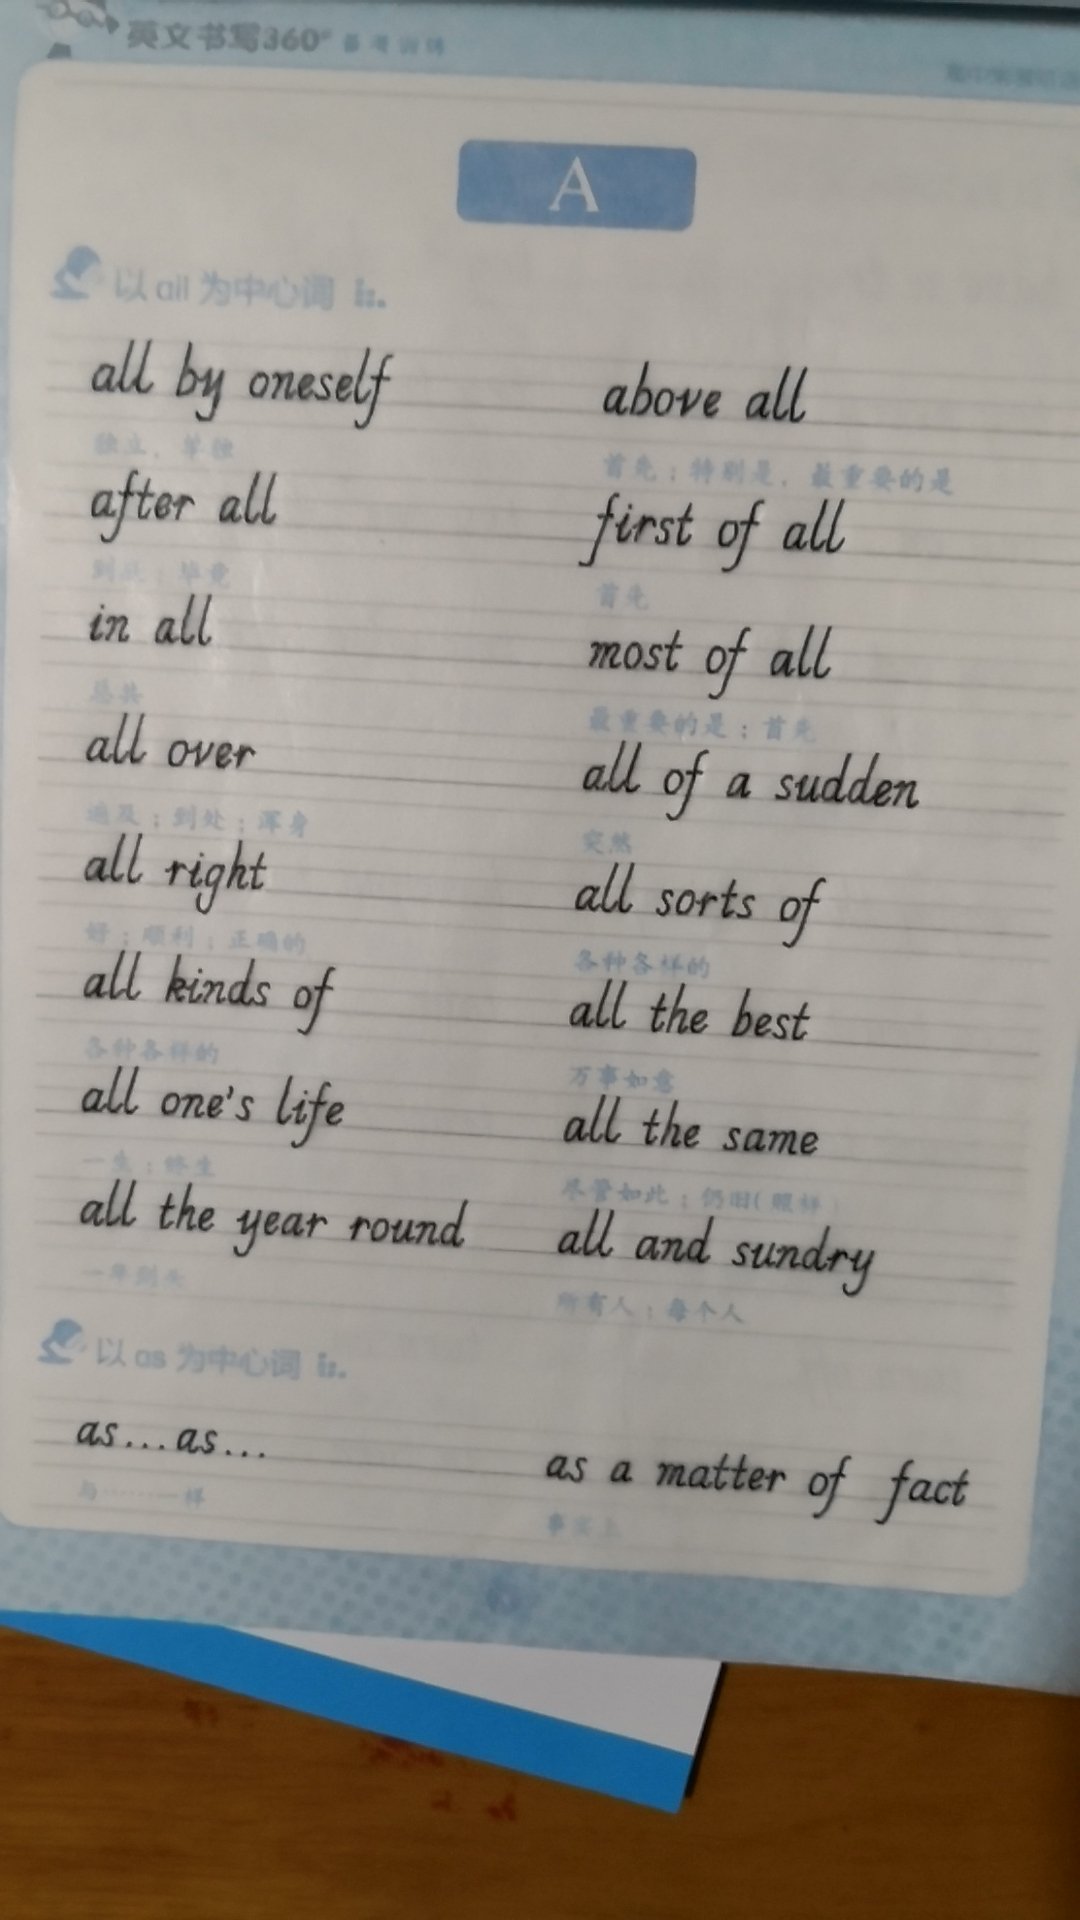 英文书写360°
A
以 all 为中心词
all by oneself
above all
独立，单独
首先；特别是，最重要的是
after all
first of all
到底；毕竟
首先
in all
most of all
总共
最重要的是；首先
all over
all of a sudden
遍及；到处；浑身
突然
all right
all sorts of
好；顺利；正确的
各种各样的
all kinds of
all the best
各种各样的
万事如意
all one's life
all the same
一生；终生
尽管如此；仍旧(照样)
all the year round
all and sundry
一年到头
所有人；每个人
以 as 为中心词
as...as...
as a matter of fact
与………一样
事实上